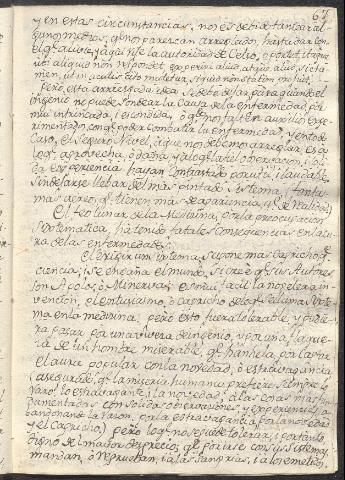 67
y en estas circunstancias, no es de bida tantear al
gunos medios, qe. no parezcan arreglados, hasta dar con
el qe. alivie, y aqui rije la autoridad de Celso, oportet itaque
ubi aliquid non respondet, experiri aliud, atque aliud, si ta
men, ut in oculis cito mutetur, si quid non statim profuit.
Pero, esta arriesgada idea se debe dejar para quando el
ingenio no puede sondear la Causa de la enfermedad, por
mui intrincada, i escondida, o qe. no halle en auxilio expe
rimentado, con qe. poder combatir la enfermedad, y en todo
Caso, el seguro Nivel, a que nos debemos arreglar es a
lo qe. aprovecha, o daña, y a lo qe. la fiel observacion, i soli
da experiencia hayan contrastado por util, i laudable,
sin dejarse llebar del mas pintado sistema, (tanto
mas aereo, qe. tienen mas de apariencia, qe. de realidad)
El feo lunar de la Medicina, con la preocupacion
systematica, ha tenido fatales consequencias en la cu
ra de las enfermedades.
El erigir un sistema, supone mas capricho qe.
ciencia; i se engaña el mundo, si cree qe. sus Autores
son Apolos, o Minervas: es mui facil la novelera in
vencion, el entusiasmo, o capricho de lo qe. se llama Syste
ma en la medicina; pero esto fuera tolerable, y pudie
ra pasar por una vivera de ingenio, y por una flaque
za de un hombre miserable, qe. anhela, por captar
el aura popular con la novedad, o extravagancia
(asegurado, qe. la miseria humana prefiere siempre lo
raro, lo extravagante, i la novedad, a las cosas mas fun
damentadas con solidas observaciones, y experiencias, a
bandonando la razon, con la extravagancia, por la novedad
y el Capricho) pero lo qe. no se puede tolerar, i por tanto
digno del mayor desprecio; qe. porfiarse con sus Systemas
mandan, o reprueban, i a las sangrias, i a los emeticos,